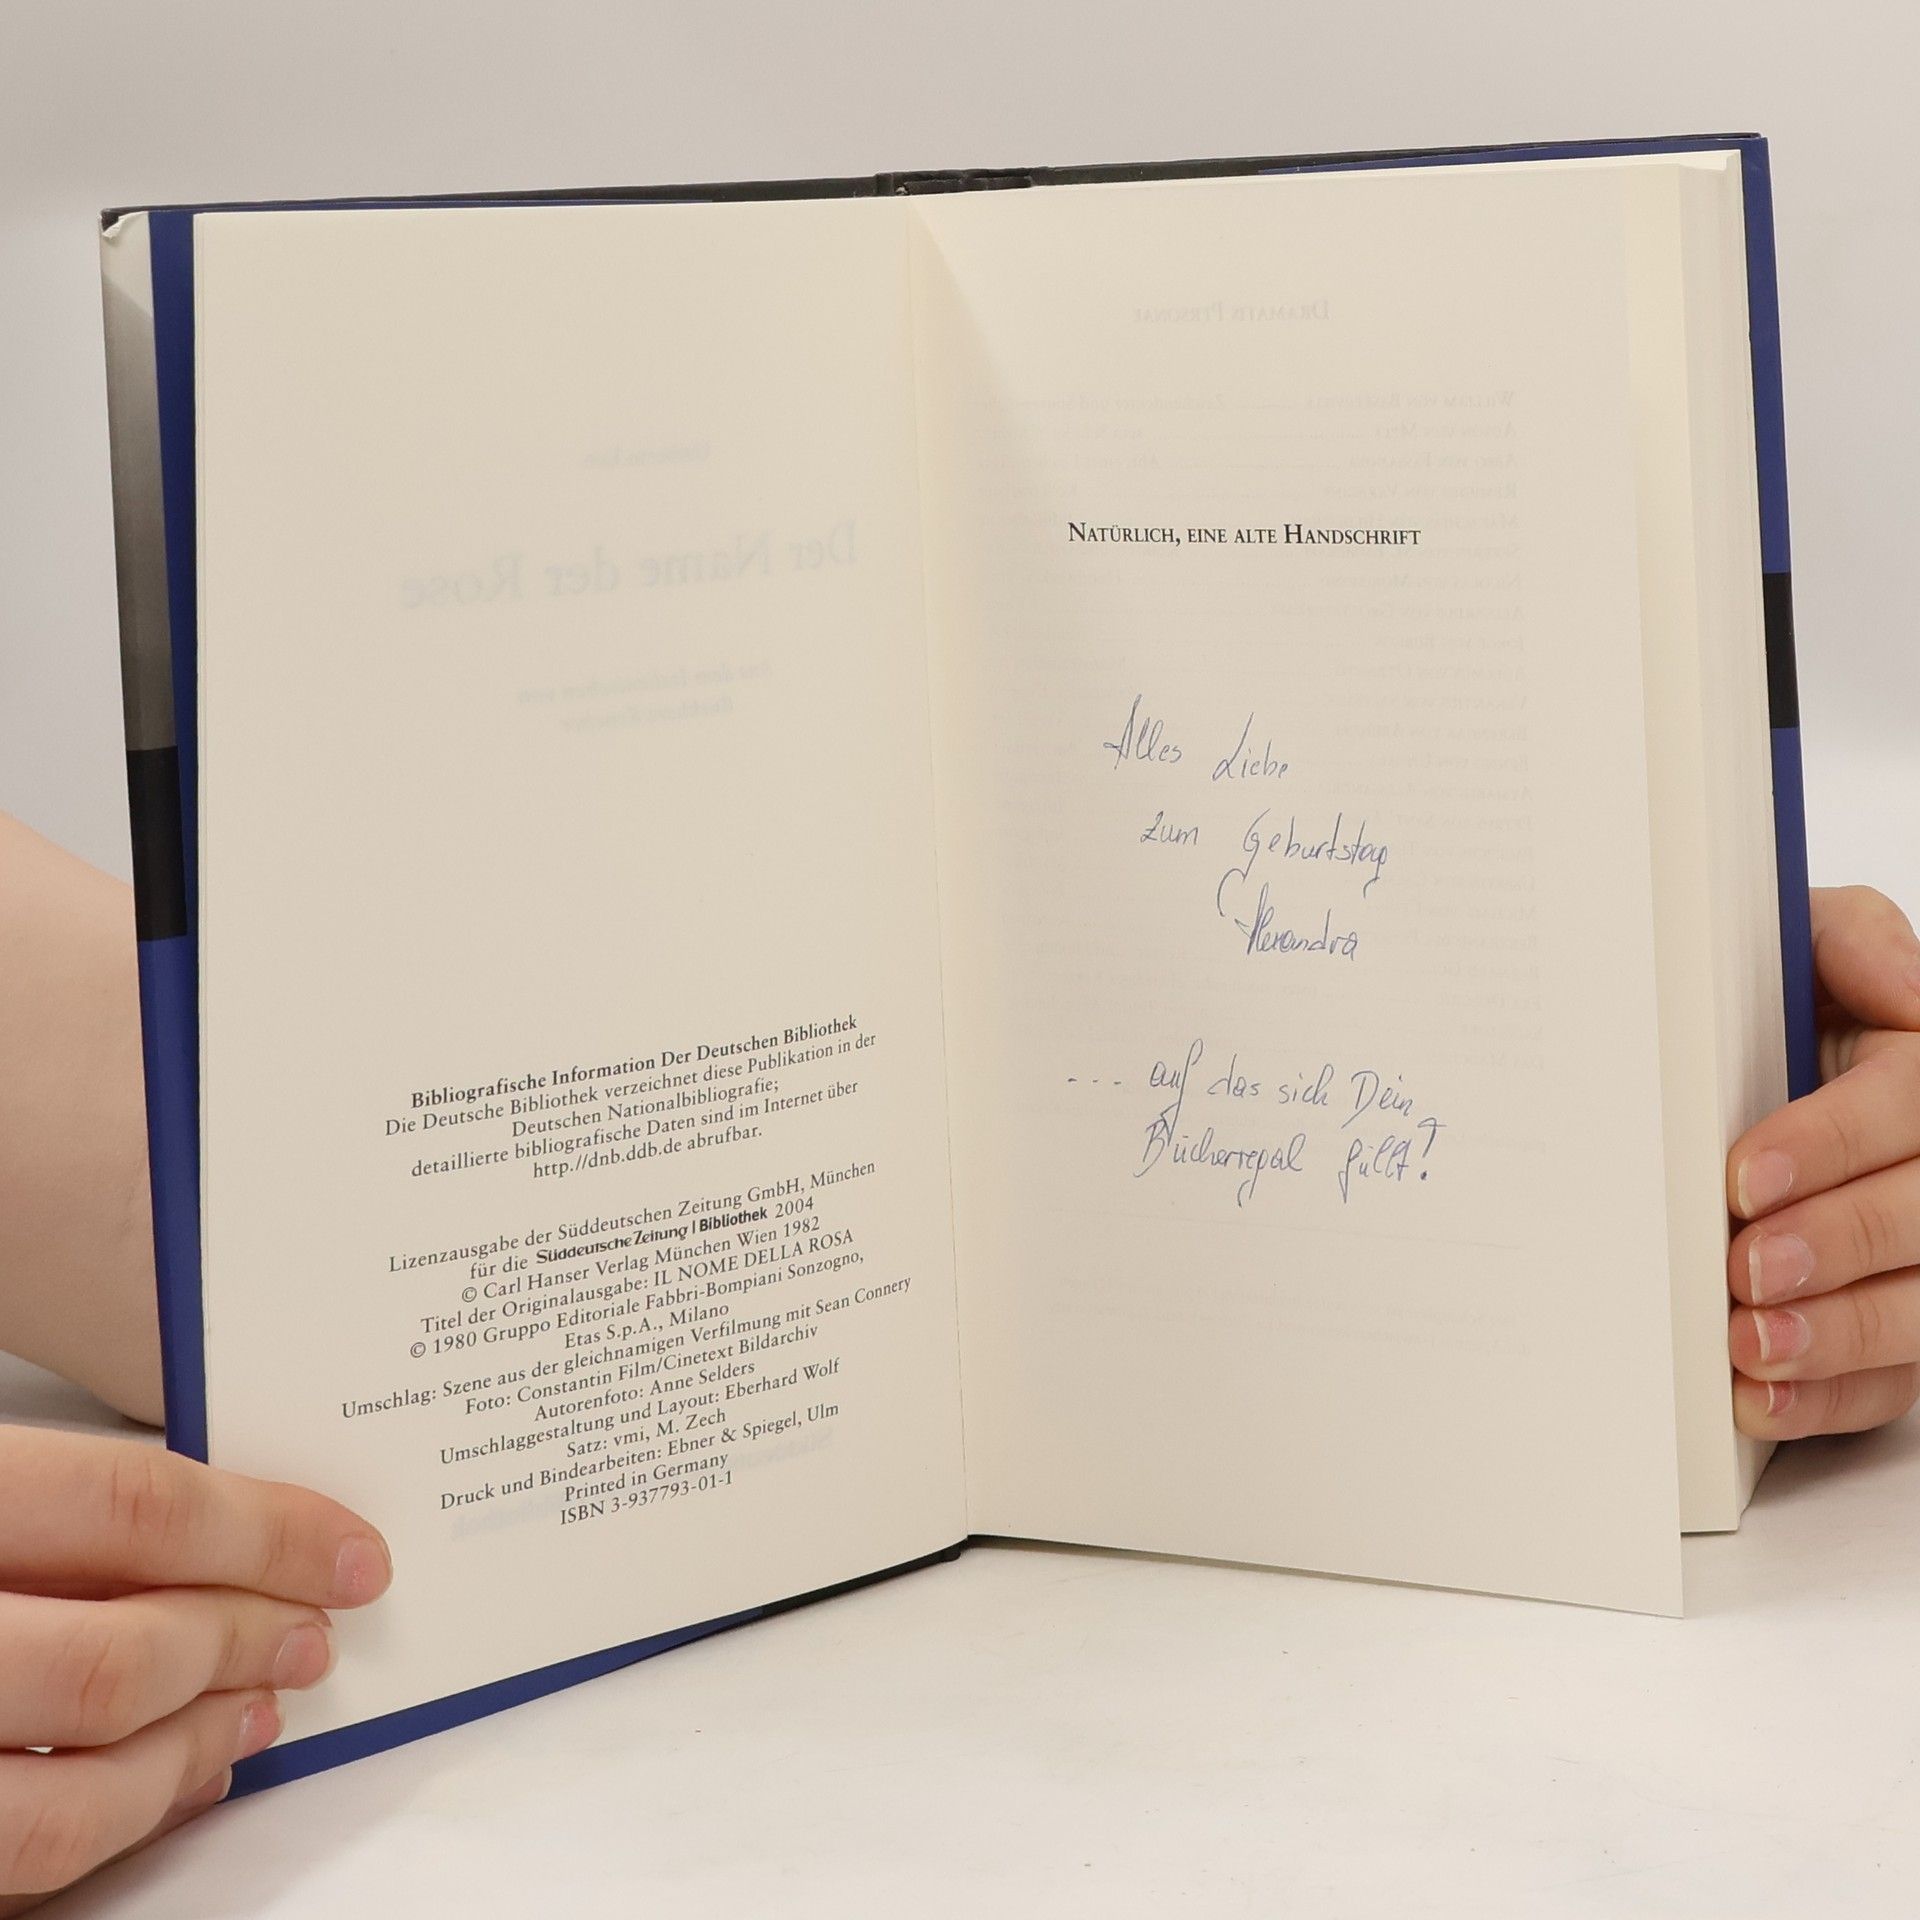 Der Name der Rose
Bibliografische Information Der Deutschen Bibliothek
Die Deutsche Bibliothek verzeichnet diese Publikation in der
Deutschen Nationalbibliografie;
detaillierte bibliografische Daten sind im Internet über
http.//dnb.ddb.de abrufbar.
Lizenzausgabe der Süddeutschen Zeitung GmbH, München
für die Süddeutsche Zeitung | Bibliothek 2004
© Carl Hanser Verlag München Wien 1982
Titel der Originalausgabe: IL NOME DELLA ROSA
© 1980 Gruppo Editoriale Fabbri-Bompiani Sonzogno,
Etas S.p.A., Milano
Umschlag: Szene aus der gleichnamigen Verfilmung mit Sean Connery
Foto: Constantin Film/Cinetext Bildarchiv
Autorenfoto: Anne Selders
Umschlaggestaltung und Layout: Eberhard Wolf
Satz: vmi, M. Zech
Druck und Bindearbeiten: Ebner & Spiegel, Ulm
Printed in Germany
ISBN 3-937793-01-1
DRAMATIS PERSONAE
NATÜRLICH, EINE ALTE HANDSCHRIFT
Alles Liebe
zum Geburtstag
Alexandra
... auf das sich Dein
Bücherregal füllt!